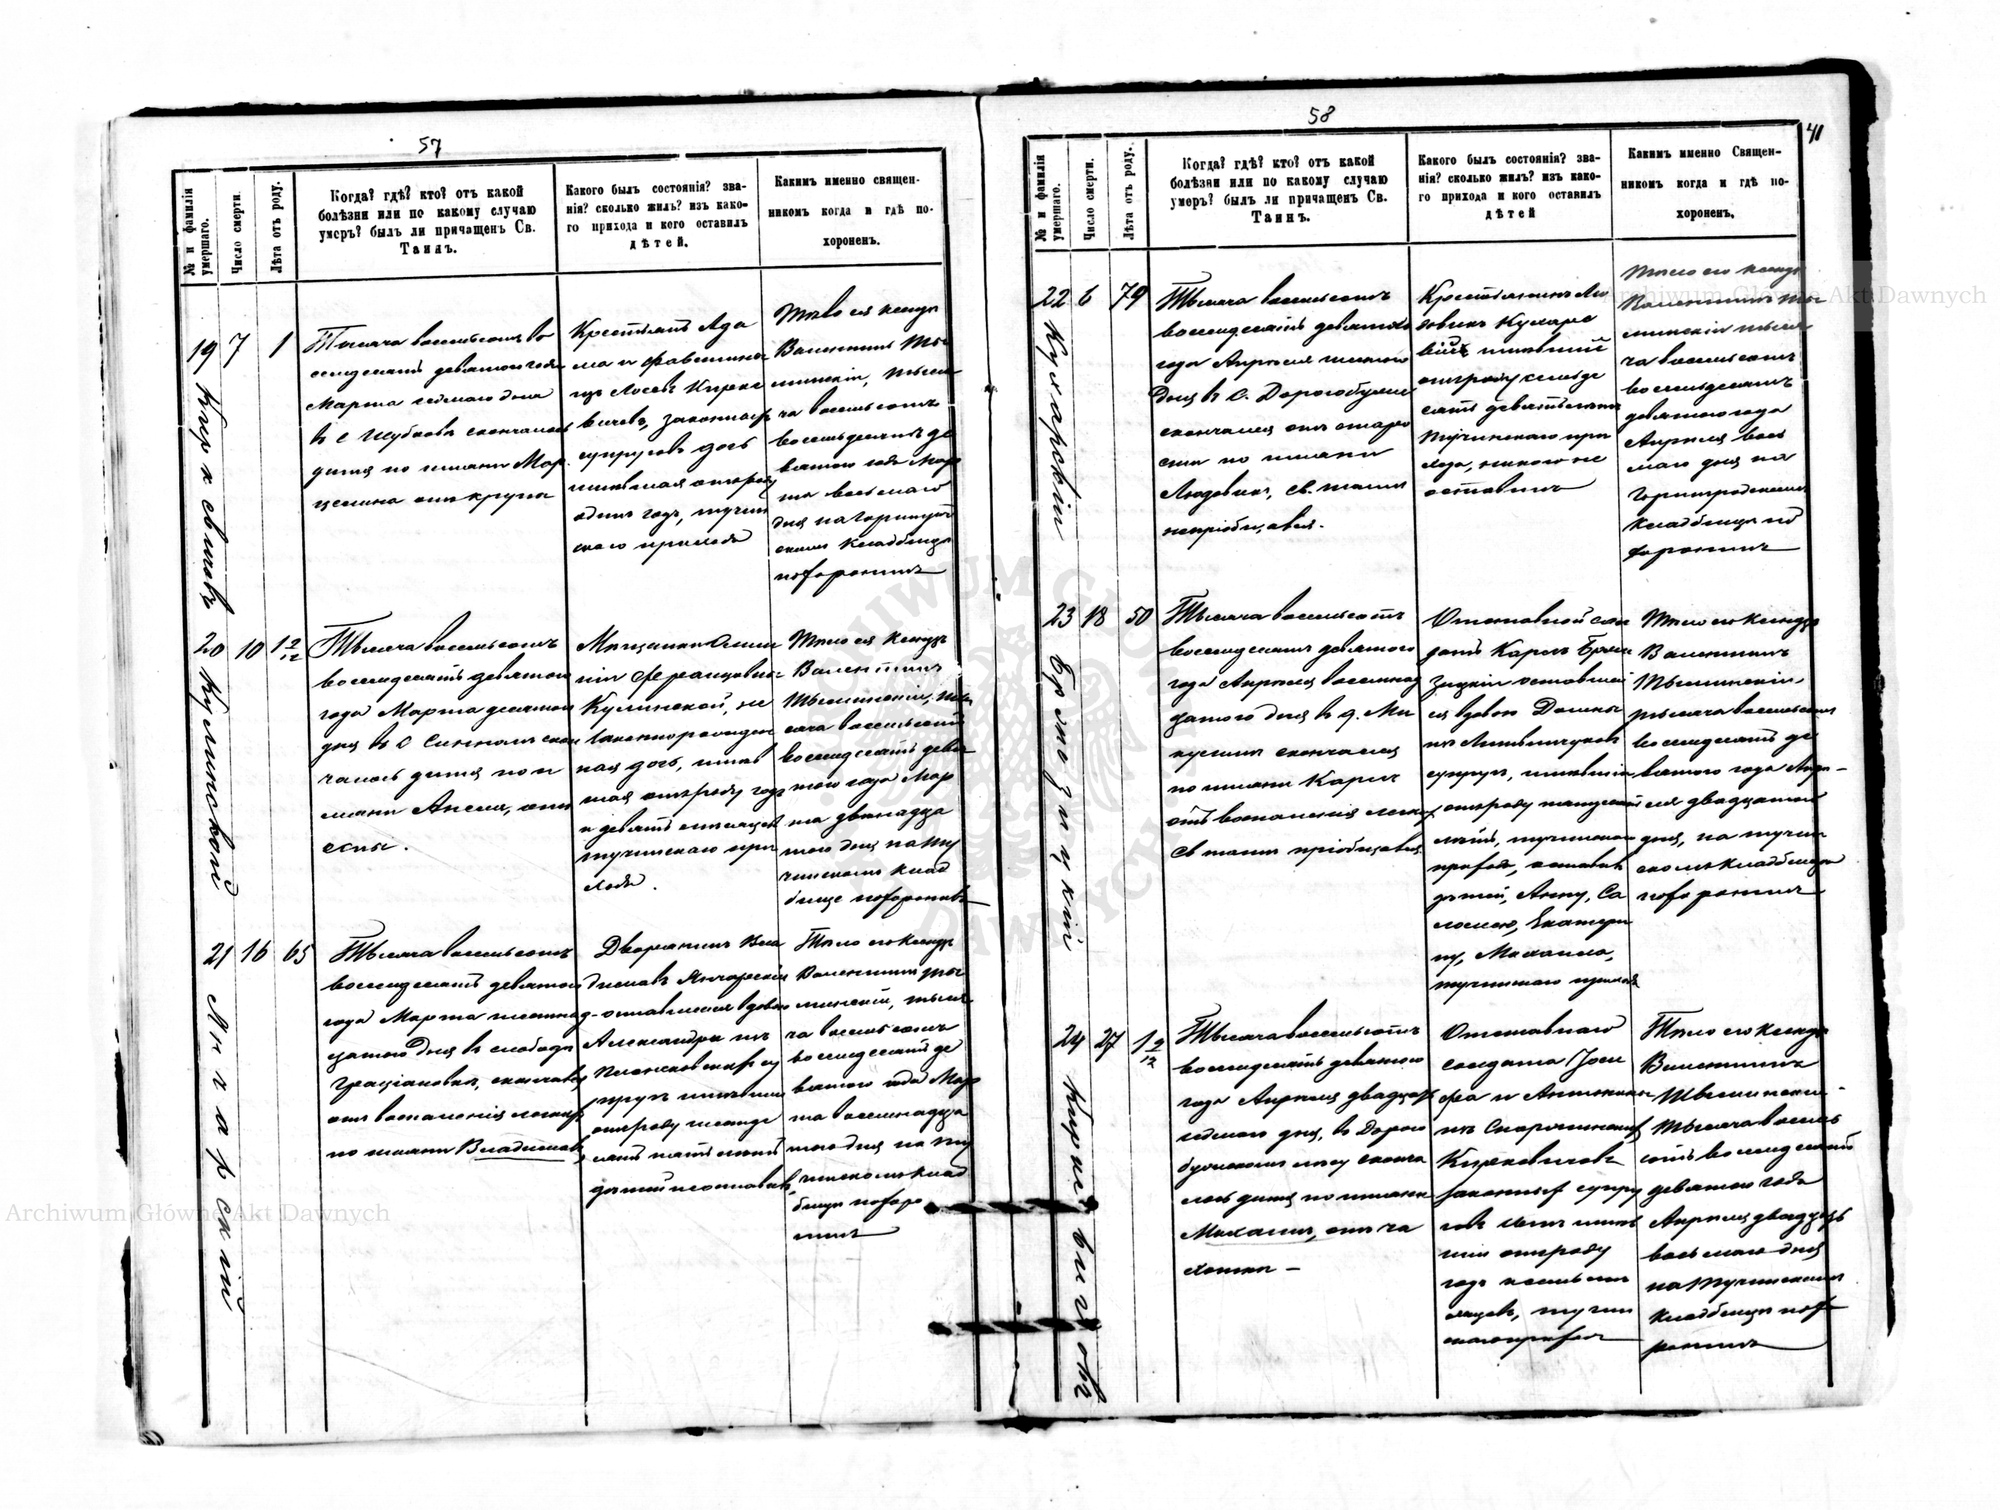 57
№ и фамилія умершаго.
Число смерти.
Лѣта отъ роду.
Когда? гдѣ? кто? отъ какой
болѣзни или по какому случаю
умеръ? былъ ли причащенъ Св.
Таинъ.
Какого былъ состоянія? зва-
нія? сколько жилъ? изъ како-
го прихода и кого оставилъ
дѣтей.
Какимъ именно священ-
никомъ когда и гдѣ по-
хороненъ.
19 7 1
Тысяча восемьсотъ во
семдесятъ девятого года
Марта седмого дня
въ с Шубковъ скончалась
дитя по имени Мар
целина отъ крупа
Крестьянъ Ада
ма и
Лосевъ
вичевъ, законныхъ
супруговъ дочь
жившая отъ роду
одинъ годъ, тучин
скаго прихода
Тѣло ея ксендзъ
Валентинъ Ты
шинскій, тыся
ча восемьсотъ
восемьдесятъ де
вятого года Мар
та восьмаго
дня на Горинград
скомъ кладбищѣ
похоронилъ
20 10 1 9/12
Кулинской
Тысяча восемьсотъ
восемдесятъ девятого
года Марта десятого
дня въ с Синномъ скон
чалось дитя по и
мени Анеля, отъ
оспы.
Мѣщанки
Францовны
Кулинской, не
законнорожден
ная дочь, жив
шая отъ роду годъ
и девять мѣсяцевъ
тучинскаго при
хода.
Тѣло ея ксендзъ
Валентинъ
Тышинскій, ты
сяча восемьсотъ
восемдесятъ девя
того года Мар
та двѣнадца
того дня на Ту
чинскомъ клад
бище похоронилъ
21 16 65
Янчарскій
Тысяча восемьсотъ
восемдесятъ девятого
года Марта шестнад
цатого дня въ слободѣ
отъ воспаленія легкихъ
по имени Владиславъ
Дворянинъ Вла
диславъ Янчарскій
оставшися вдовою
Александры изъ
су
пругъ жившій
отъ роду шестьде
сятъ пять лѣтъ
дѣтей не оставилъ
Тѣло его ксендзъ
Валентинъ Ты
шинскій, тыся
ча восемьсотъ
восемдесятъ де
вятого года Мар
та восемнадца
того дня на Ту
чинскомъ клад
бищѣ похоро
нилъ
58
41
№ и фамилія умершаго.
Число смерти.
Лѣта отъ роду.
Когда? гдѣ? кто? отъ какой
болѣзни или по какому случаю
умеръ? былъ ли причащенъ Св.
Таинъ.
Какого былъ состоянія? зва-
нія? сколько жилъ? изъ како-
го прихода и кого оставилъ
дѣтей
Какимъ именно Священ-
никомъ когда и гдѣ по-
хороненъ.
22 6 79
Кухарскій
Тысяча восемьсотъ
восемдесятъ девятого
года Апрѣля шестого
дня въ с. Дорогобужѣ
скончался отъ старо
сти по имени
Людовикъ, св. таинъ
непріобщався.
Крестьянинъ Лю
довикъ Кухарс
кій жившій
отъ роду семьде
сятъ девять лѣтъ
Тучинскаго при
хода, никого не
оставилъ
Тѣло его ксендзъ
Валентинъ Ты
шинскій тыся
ча восемьсотъ
восемьдесятъ
девятого года
Апрѣля вось
маго дня на
Горинградскомъ
кладбищѣ по
хоронилъ
23 18 50
Брензицкій
Тысяча восемьсотъ
восемдесятъ девятого
года Апрѣля восемнад
цатого дня въ д. Ми
скончался
по имени Карлъ
отъ воспаленія легкихъ
св таинъ пріобщався
Отставной сол
датъ Карлъ Брен
зицкій оставшій
ся вдовою
супругъ, жившій
отъ роду пятдесятъ
лѣтъ, тучинскаго
прихода, оставилъ
дѣтей, Анну, Са
ломею, Екатери
ну, Михаила,
тучинскаго прихода
Тѣло его ксендзъ
Валентинъ
Тышинскій,
тысяча восемьсотъ
восемдесятъ де
вятого года Апрѣ-
ля двадцатого
дня, на тучин
скомъ кладбищѣ
похоронилъ
24 27 1 9/12
Тысяча восемьсотъ
восемдесятъ девятого
года Апрѣля двадцать
седмого дня, въ Дорого
бужскомъ лѣсу сконча
лось дитя по имени
Михаилъ, отъ ча
хотки –
Отставнаго
солдата Іоси
фа и Антонины
изъ
законныхъ супру
говъ сынъ жив
шій отъ роду
годъ
сяцевъ, тучин
скаго прихода
Тѣло его ксендзъ
Валентинъ
Тышинскій
тысяча восемь
сотъ восемдесятъ
девятого года
Апрѣля двадцать
восьмого дня
на Тучинскомъ
кладбищѣ похо
ронилъ
Archiwum Główne Akt Dawnych
Archiwum Główne Akt Dawnych